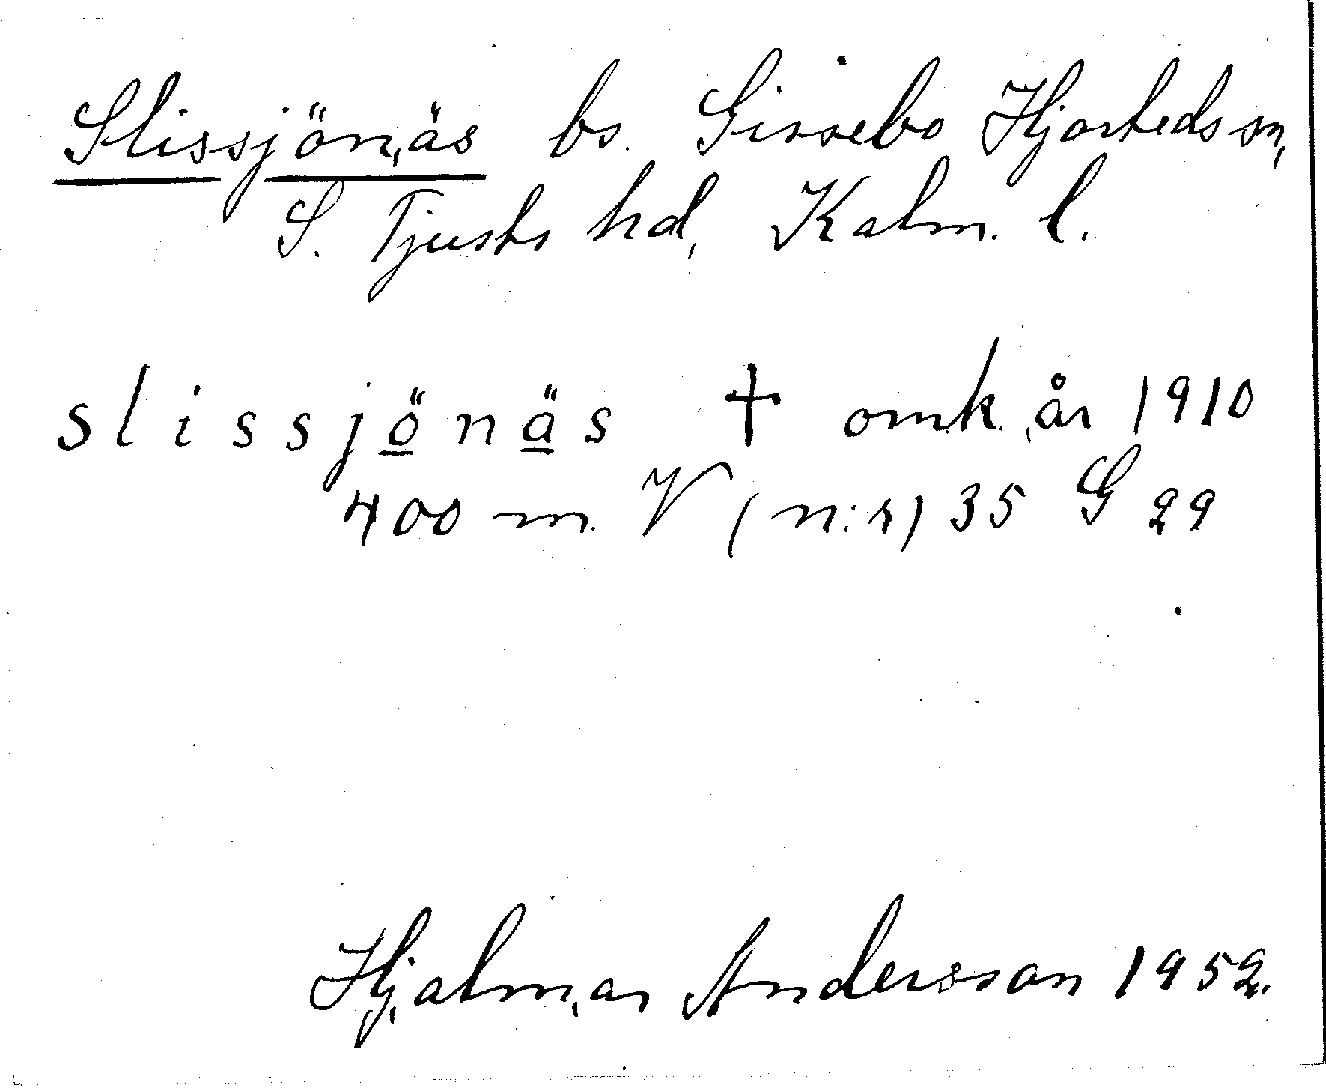 Slissjönäs bs. Gissebo Hjorteds sn,
S. Tjusts hd, Kalm. l.
slissjönäs † omk. år 1910
400 m. V (n:r) 35 G 29
Hjalmar Andersson 1952.